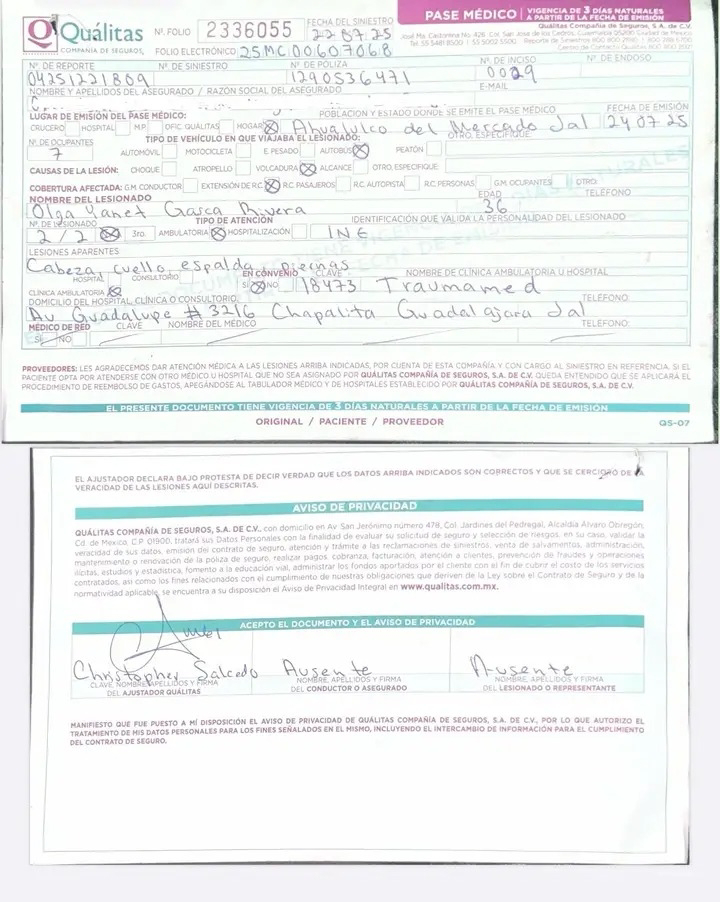 Quálitas
COMPAÑÍA DE SEGUROS,
Nº. FOLIO 2336055
FECHA DEL SINIESTRO
22 07 25
FOLIO ELECTRÓNICO 25MC00607068
PASE MÉDICO | VIGENCIA DE 3 DÍAS NATURALES A PARTIR DE LA FECHA DE EMISIÓN
Quálitas Compañía de Seguros, S.A. de C.V.
Nº. DE REPORTE Nº. DE SINIESTRO Nº. DE PÓLIZA Nº. DE INCISO Nº. DE ENDOSO
04251221809 1290536471 0029
NOMBRE Y APELLIDOS DEL ASEGURADO / RAZÓN SOCIAL DEL ASEGURADO E-MAIL
LUGAR DE EMISIÓN DEL PASE MÉDICO: POBLACIÓN Y ESTADO DONDE SE EMITE EL PASE MÉDICO FECHA DE EMISIÓN
CRUCERO HOSPITAL M.P. OFIC. QUÁLITAS HOGAR Ahualulco del Mercado Jal 24 07 25
Nº. DE OCUPANTES TIPO DE VEHÍCULO EN QUE VIAJABA EL LESIONADO: OTRO, ESPECIFIQUE
7 AUTOMÓVIL MOTOCICLETA E. PESADO AUTOBÚS PEATÓN
CAUSAS DE LA LESIÓN: CHOQUE ATROPELLO VOLCADURA ALCANCE OTRO, ESPECIFIQUE
COBERTURA AFECTADA: G.M. CONDUCTOR EXTENSIÓN DE R.C. R.C. PASAJEROS R.C. AUTOPISTA R.C. PERSONAS G.M. OCUPANTES OTRO
NOMBRE DEL LESIONADO EDAD TELÉFONO
Olga Yanet Garca Rivera 36
Nº. DE LESIONADO TIPO DE ATENCIÓN IDENTIFICACIÓN QUE VALIDA LA PERSONALIDAD DEL LESIONADO
2 / 2 3ro. AMBULATORIA HOSPITALIZACIÓN INE
LESIONES APARENTES
Cabeza, cuello espalda piernas
HOSPITAL CONSULTORIO EN CONVENIO CLAVE NOMBRE DE CLÍNICA AMBULATORIA U HOSPITAL
CLÍNICA AMBULATORIA SÍ NO 18473 Traumamed
DOMICILIO DEL HOSPITAL, CLÍNICA O CONSULTORIO. TELÉFONO:
Av Guadalupe # 3216 Chapalita Guadalajara Jal
MÉDICO DE RED CLAVE NOMBRE DEL MÉDICO TELÉFONO:
SÍ NO
PROVEEDORES: LES AGRADECEMOS DAR ATENCIÓN MÉDICA A LAS LESIONES ARRIBA INDICADAS, POR CUENTA DE ESTA COMPAÑÍA Y CON CARGO AL SINIESTRO EN REFERENCIA. SI EL
PACIENTE OPTA POR ATENDERSE CON OTRO MÉDICO U HOSPITAL QUE NO SEA ASIGNADO POR QUÁLITAS COMPAÑÍA DE SEGUROS, S.A. DE C.V. QUEDA ENTENDIDO QUE SE APLICARÁ EL
PROCEDIMIENTO DE REEMBOLSO DE GASTOS, APEGÁNDOSE AL TABULADOR MÉDICO Y DE HOSPITALES ESTABLECIDO POR QUÁLITAS COMPAÑÍA DE SEGUROS, S.A. DE C.V.
EL PRESENTE DOCUMENTO TIENE VIGENCIA DE 3 DÍAS NATURALES A PARTIR DE LA FECHA DE EMISIÓN
ORIGINAL / PACIENTE / PROVEEDOR QS-07
EL AJUSTADOR DECLARA BAJO PROTESTA DE DECIR VERDAD QUE LOS DATOS ARRIBA INDICADOS SON CORRECTOS Y QUE SE CERCIORÓ DE LA
VERACIDAD DE LAS LESIONES AQUÍ DESCRITAS.
AVISO DE PRIVACIDAD
QUÁLITAS COMPAÑÍA DE SEGUROS, S.A. DE C.V., con domicilio en Av. San Jerónimo número 478, Col. Jardines del Pedregal, Alcaldía Álvaro Obregón,
Cd. de México, C.P. 01900, tratará sus Datos Personales con la finalidad de evaluar su solicitud de seguro y selección de riesgos, en su caso, validar la
veracidad de sus datos, emisión del contrato de seguro, atención y trámite a las reclamaciones de siniestros, venta de salvamentos, administración,
mantenimiento o renovación de la póliza de seguro, realizar pagos, cobranza, facturación, atención a clientes, prevención de fraudes y operaciones
ilícitas, estudios y estadística, fomento a la educación vial, administrar los fondos aportados por el cliente con el fin de cubrir el costo de los servicios
contratados, así como los fines relacionados con el cumplimiento de nuestras obligaciones que deriven de la Ley sobre el Contrato de Seguro y de la
normatividad aplicable, se encuentra a su disposición el Aviso de Privacidad Integral en www.qualitas.com.mx.
ACEPTO EL DOCUMENTO Y EL AVISO DE PRIVACIDAD
Christopher Salcedo Ausente Ausente
CLAVE, NOMBRE, APELLIDOS Y FIRMA NOMBRE, APELLIDOS Y FIRMA NOMBRE, APELLIDOS Y FIRMA
DEL AJUSTADOR QUÁLITAS DEL CONDUCTOR O ASEGURADO DEL LESIONADO O REPRESENTANTE
MANIFIESTO QUE FUE PUESTO A MI DISPOSICIÓN EL AVISO DE PRIVACIDAD DE QUÁLITAS COMPAÑÍA DE SEGUROS, S.A. DE C.V., POR LO QUE AUTORIZO EL
TRATAMIENTO DE MIS DATOS PERSONALES PARA LOS FINES SEÑALADOS EN EL MISMO, INCLUYENDO EL INTERCAMBIO DE INFORMACIÓN PARA EL CUMPLIMIENTO
DEL CONTRATO DE SEGURO.